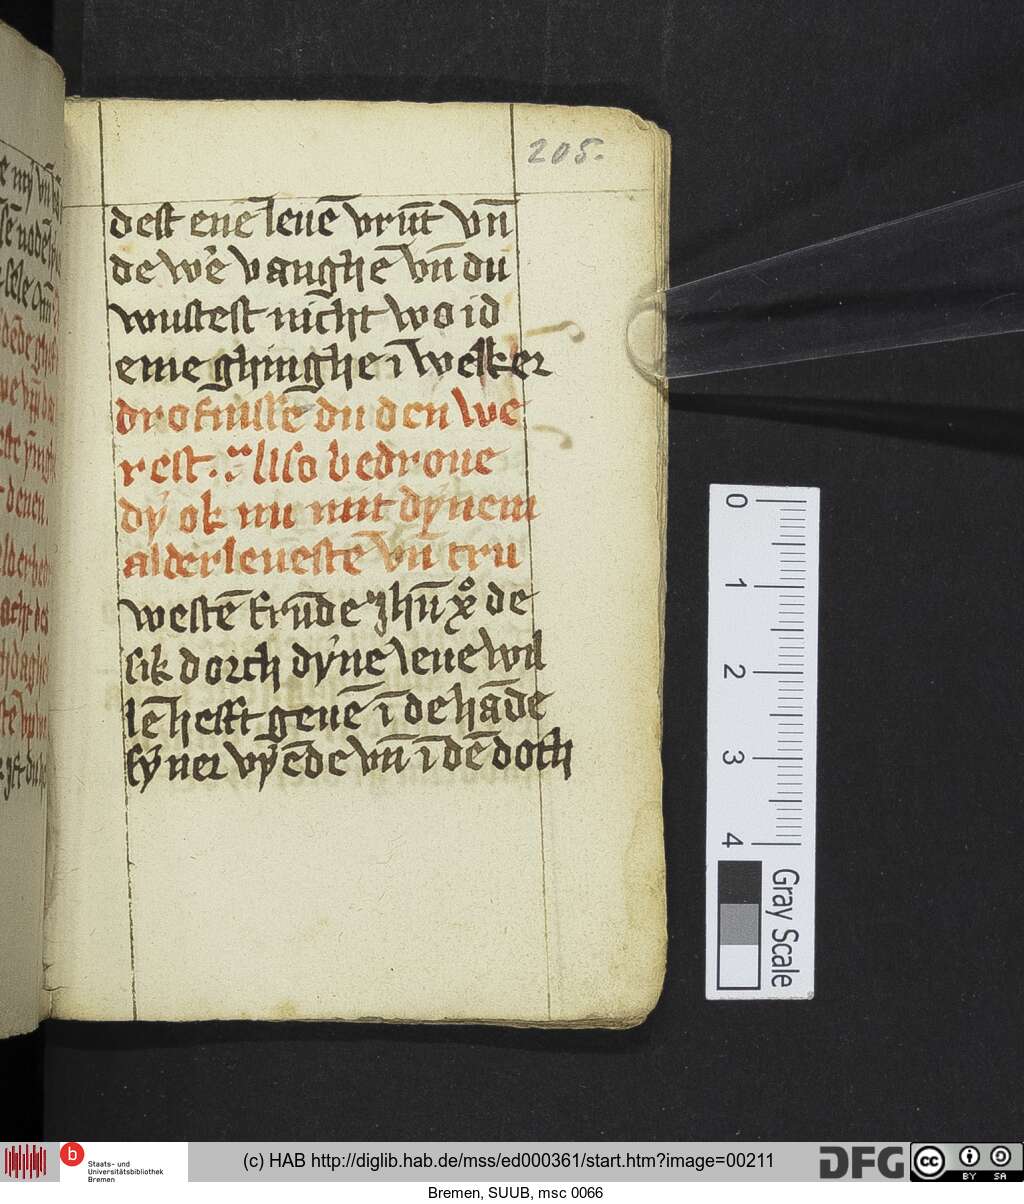 205.
dest enē leuē vrūt vn̄
de we᷎ vanghē vn̄ du
wustest nicht wo id
eme ghinghe ī welker
drofnissē du den we
rest. Also bedroue
dy̍ ok nu mit dy̍nem
alderleuestē vn̄ tru
westē frūde ihū xo de
sik dorch dy̍ne leue wil
lē hefft geuē ī de hāde
sy̍ner vy̍ēde vn̄ ī dē doch
0
1
2
3
4
Gray Scale
b
Staats- und
Universitätsbibliothek
Bremen
(c) HAB http://diglib.hab.de/mss/ed000361/start.htm?image=00211
DFG
cc
BY SA
Bremen, SUUB, msc 0066